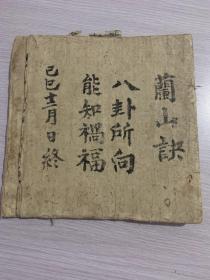 蘭山訣
八卦所向
能知禍福
己巳十二月日終